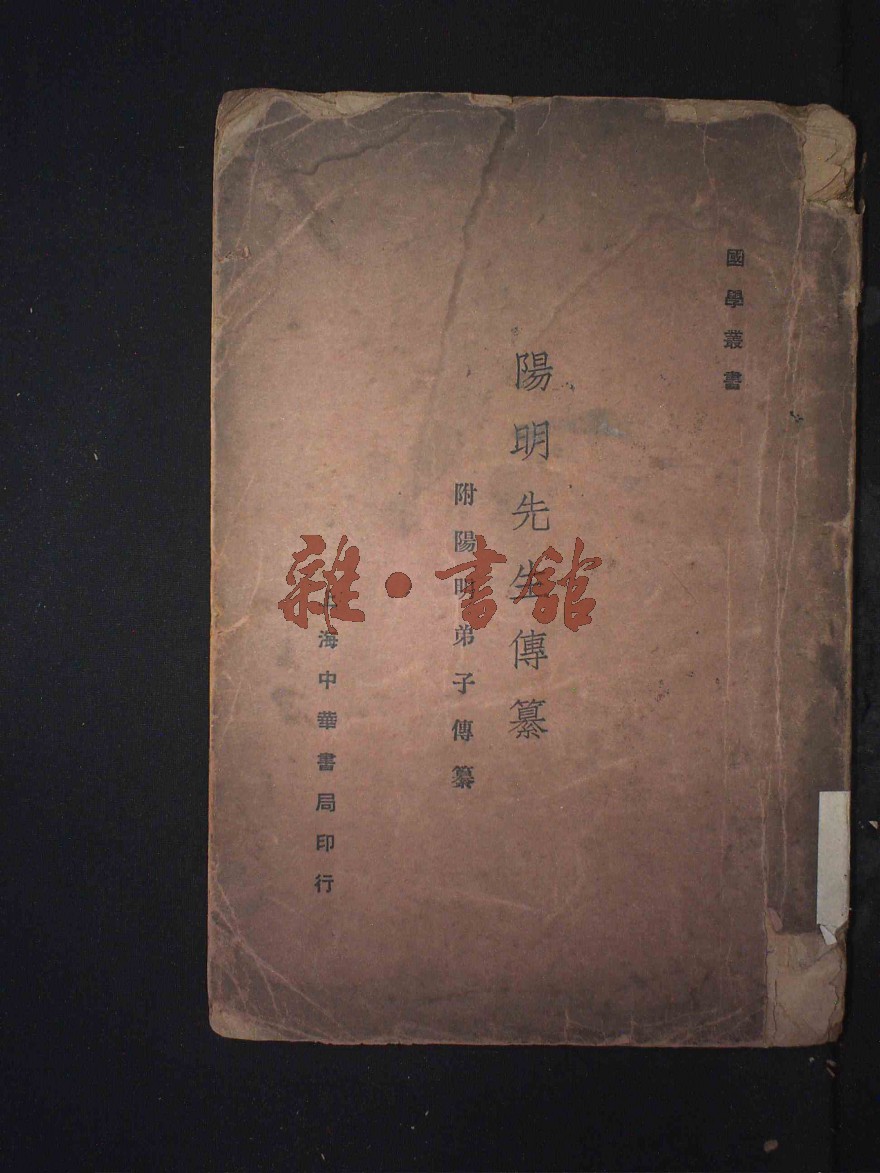 國學叢書
陽明先生傳纂
附陽明弟子傳纂
海中華書局印行
雜·書館